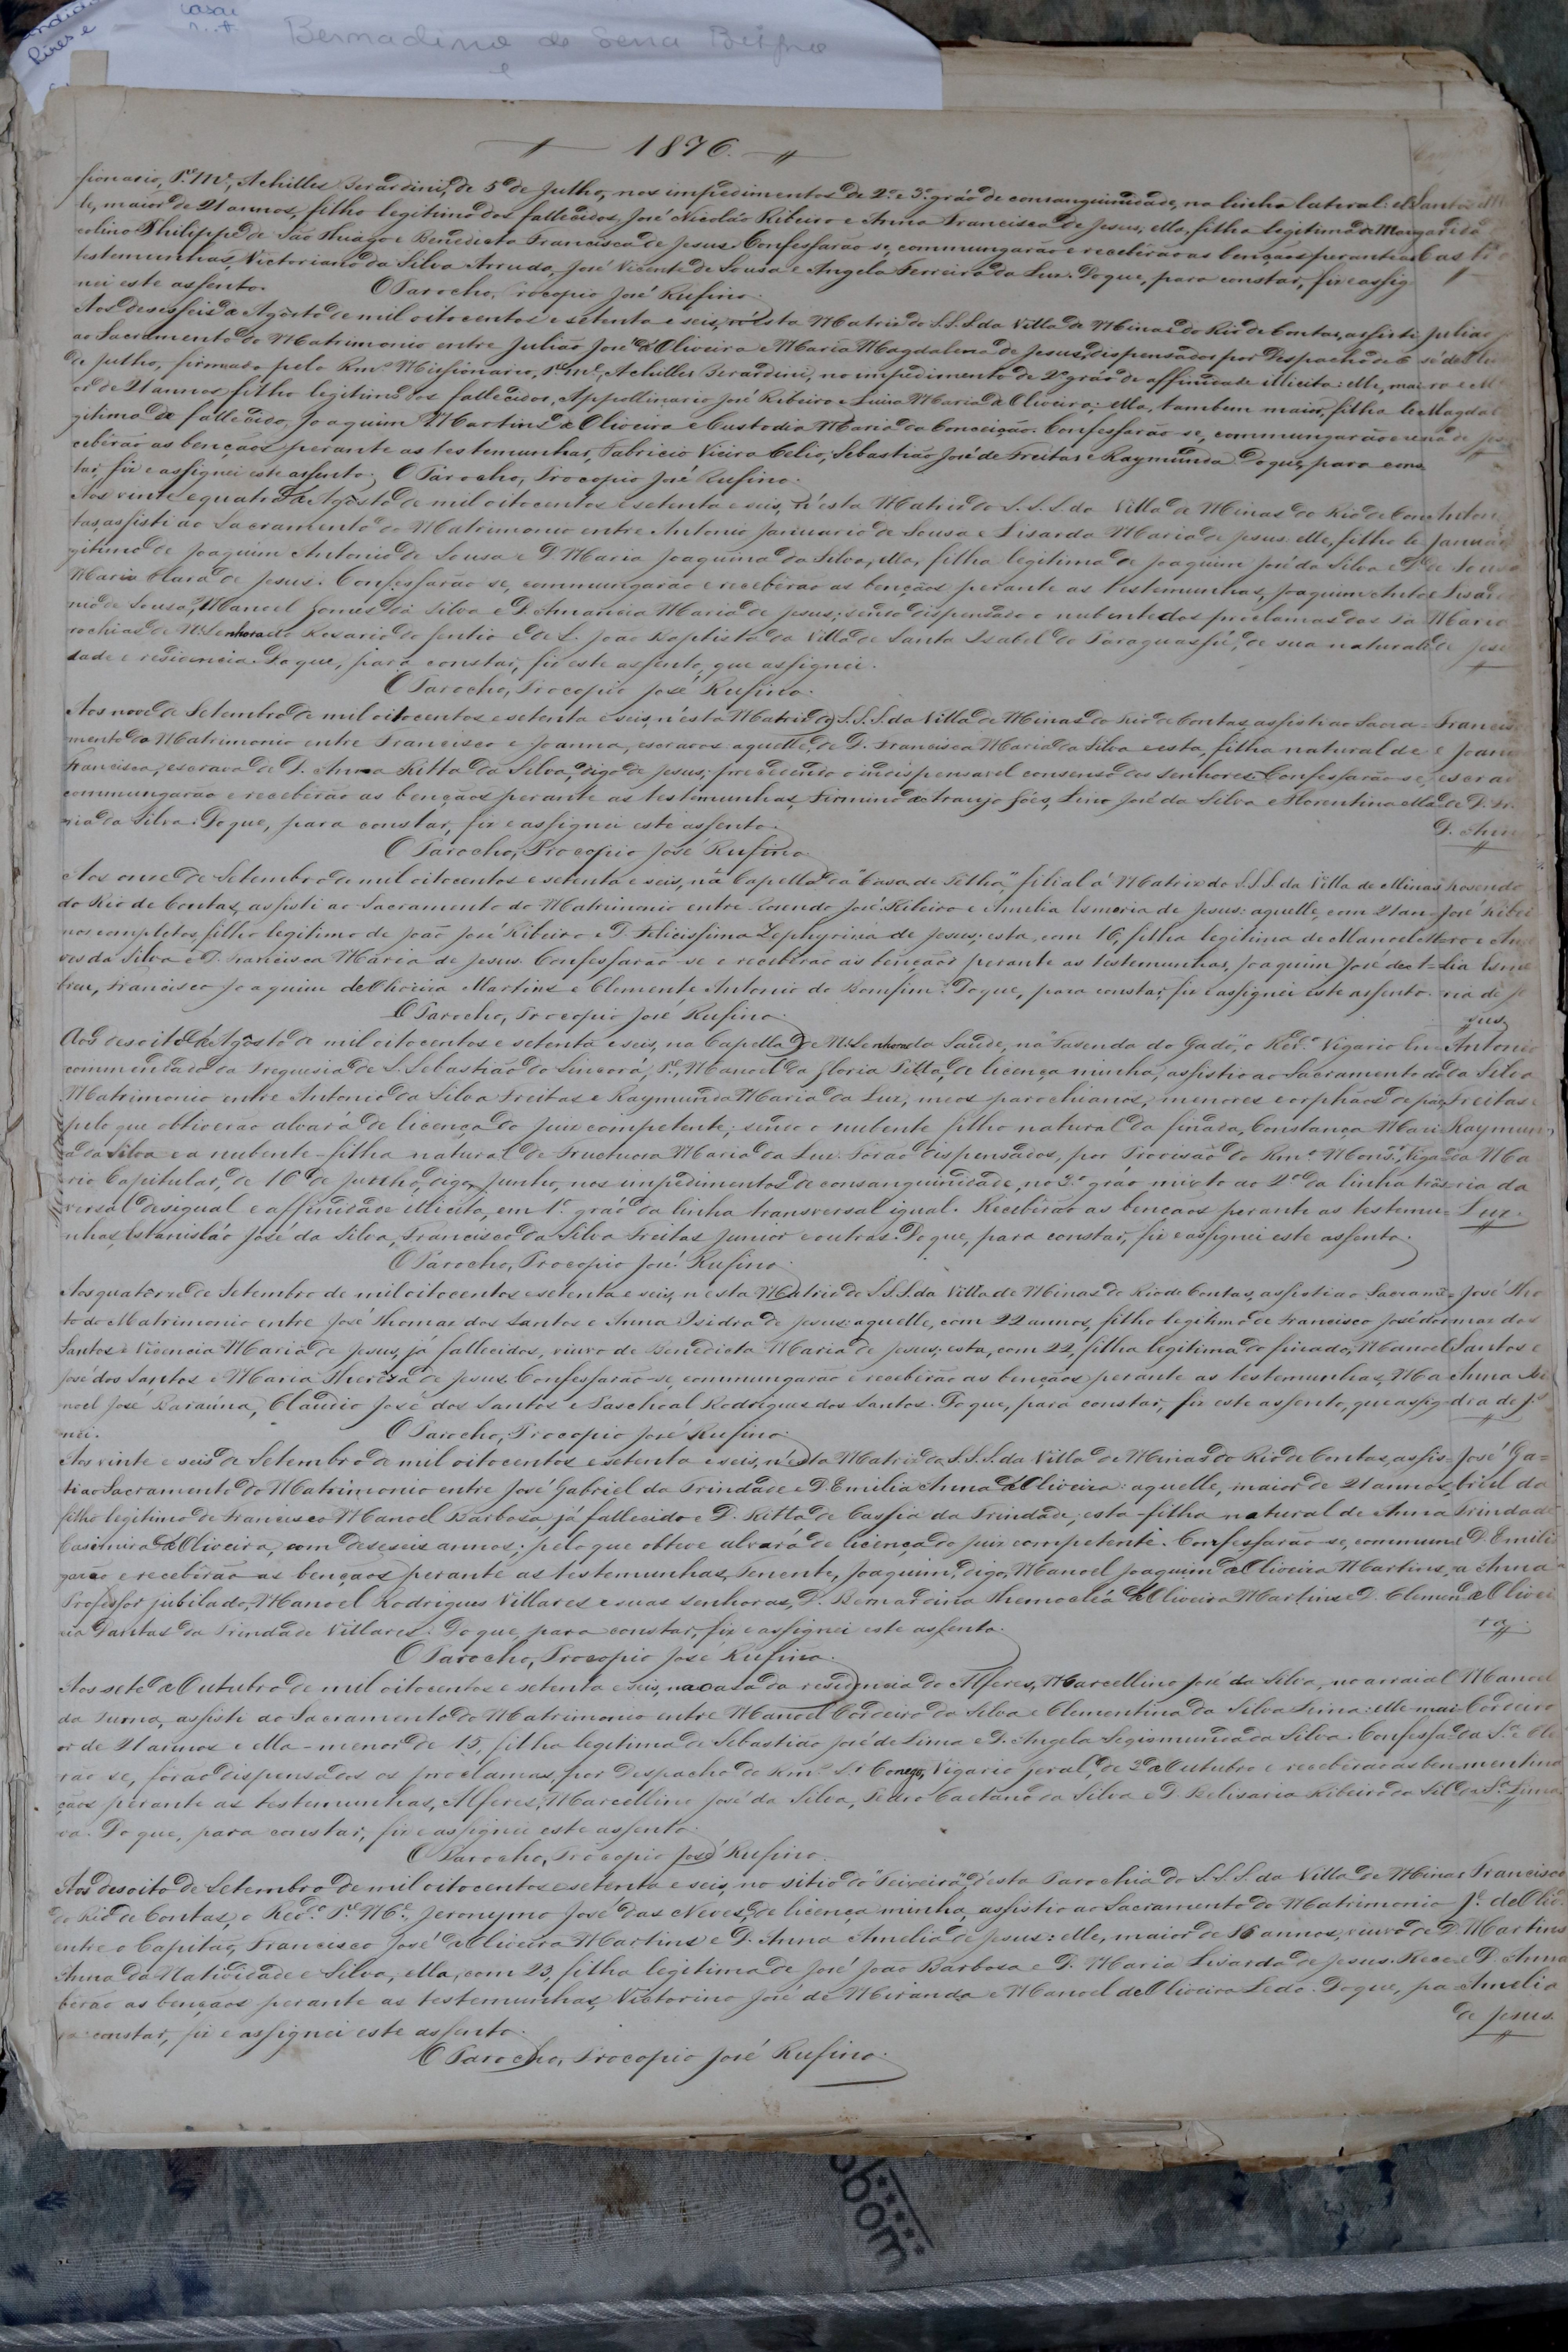 Bernadino de Sena
1876.
sionario, P.e M.e, Achilles Berardini, de 5 de Julho, nos impedimentos de 2.º e 3.º gráo de consanguinidade, na linha lateral: el
le, maior de 21 annos, filho legitimo dos fallecidos, José Nicoláo Ribeiro e Anna Francisca de Jesus, ella, filha legitima de Mar
colino Philippe de São Thiago e Benedicta Francisca de Jesus. Confessarão-se, commungarão e receberão as bençãos perante as
testemunhas, Victoriano da Silva Arruda, José Vicente de Sousa e Angela Ferreira da Luz. Do que, para constar, fiz e assig
nei este assento.
O Parocho, Procopio José Rufino.
Aos desesseis de Agosto de mil oitocentos e setenta e seis, n'esta Matriz do S.S.S. da Villa de Minas do Rio de Contas, assisti
ao Sacramento do Matrimonio entre Julião José d'Oliveira e Maria Magdalena de Jesus, dispensados por Despacho de 6
de Julho, firmado pelo Rm.º Missionario, P.e M.e, Achilles Berardini, no impedimento de 2.º gráo de affinidade illicita: elle, mai
or de 21 annos, filho legitimo dos fallecidos, Appollinario José Ribeiro e Luiza Maria d'Oliveira; ella, tambem maior, filha le
gitima do fallecido, Joaquim Martins d'Oliveira e Custodia Maria da Conceição. Confessarão-se, commungarão e re
ceberão as bençãos perante as testemunhas, Fabricio Vieira Celio, Sebastião José de Freitas e Raymunda Do que, para cons
tar, fiz e assignei este assento. O Parocho, Procopio José Rufino.
Aos vinte e quatro d'Agosto de mil oitocentos e setenta e seis, n'esta Matriz do S.S.S. da Villa de Minas do Rio de Con
tas, assisti ao Sacramento do Matrimonio entre Antonio Januario de Sousa e Lisarda Maria de Jesus: elle, filho le
gitimo de Joaquim Antonio de Sousa e D. Maria Joaquina da Silva, ella, filha legitima de Joaquim José da Silva e D.
Maria Clara de Jesus. Confessarão-se, commungarão e receberão as bençãos perante as testemunhas, Joaquim Anto
nio de Sousa, Manoel Gomes da Silva e D. Amancia Maria de Jesus; sendo dispensado o nubente dos proclamas das Pa
rochias de N. Senhora do Rosario do Gentio e de S. João Baptista da Villa de Santa Isabel do Paraguassú, de sua naturali
dade e residencia. Do que, para constar, fiz este assento, que assignei.
O Parocho, Procopio José Rufino.
Aos nove de Setembro de mil oitocentos e setenta e seis, n'esta Matriz do S.S.S. da Villa de Minas do Rio de Contas, assisti ao Sacra-
mento do Matrimonio entre Francisco e Joanna, escravos: aquelle, de D. Francisca Maria da Silva e esta, filha natural de
Francisca, escrava de D. Anna Ritta da Silva, digo, de Jesus; precedendo o indispensavel consenso dos senhores. Confessarão-se,
commungarão e receberão as bençãos perante as testemunhas, Firmino de Araujo Góes, Lino José da Silva e Florentina Ma
ria da Silva. Do que, para constar, fiz e assignei este assento.
O Parocho, Procopio José Rufino.
Aos onze de Setembro de mil oitocentos e setenta e seis, na Capella da "Casa de Telha", filial á Matriz do S.S.S. da Villa de Minas
do Rio de Contas, assisti ao Sacramento do Matrimonio entre Rosendo José Ribeiro e Amelia Esmeria de Jesus: aquelle, com 21 an-
nos completos, filho legitimo de João José Ribeiro e D. Felicissima Zephyrina de Jesus; esta, com 16, filha legitima de Manoel
da Silva e D. Francisca Maria de Jesus. Confessarão-se e receberão as bençãos perante as testemunhas, Joaquim José de A-
breu, Francisco Joaquim de Oliveira Martins e Clemente Antonio do Bomfim. Do que, para constar, fiz e assignei este assento.
O Parocho, Procopio José Rufino.
Aos desoito de Agosto de mil oitocentos e setenta e seis, na Capella de N. Senhora da Saude, na "Fasenda do Gado", o Rev.º Vigario En-
commendado da Freguesia de S. Sebastião do Sincorá, P.e, Manoel da Gloria Pitta, de licença minha, assistio ao Sacramento do
Matrimonio entre Antonio da Silva Freitas e Raymunda Maria da Luz, meos parochianos, menores e orphãos de pai,
pelo que obtiverão alvará de licença do Juiz competente; sendo o nubente filho natural da finada, Constança Mari
a da Silva e a nubente - filha natural de Fructuosa Maria da Luz. Forão dispensados, por Provisão do Rm.º Mons.r Viga
rio Capitular, de 16 de Junho, digo, Junho, nos impedimentos de consanguinidade, no 3.º gráo mixto ao 2.º da linha trans
versal desigual e affinidade illicita, em 1.º gráo da linha transversal igual. Receberão as bençãos perante as testemu-
nhas, Estanisláo José da Silva, Francisco da Silva Freitas Junior e outros. Do que, para constar, fiz e assignei este assento.
O Parocho, Procopio José Rufino.
Aos quatorze de Setembro de mil oitocentos e setenta e seis, n'esta Matriz do S.S.S. da Villa de Minas do Rio de Contas, assisti ao Sacramen-
to do Matrimonio entre José Thomaz dos Santos e Anna Isidra de Jesus: aquelle, com 22 annos, filho legitimo de Francisco José dos
Santos e Vicencia Maria de Jesus, já fallecidos, viuvo de Benedicta Maria de Jesus; esta, com 22, filha legitima do finado, Manoel
José dos Santos e Maria Thereza de Jesus. Confessarão-se, commungarão e receberão as bençãos perante as testemunhas, Ma
noel José Baraúna, Claudio José dos Santos e Paschoal Rodrigues dos Santos. Do que, para constar, fiz este assento, que assig-
nei.
O Parocho, Procopio José Rufino.
Aos vinte e seis de Setembro de mil oitocentos e setenta e seis, n'esta Matriz do S.S.S. da Villa de Minas do Rio de Contas, assis-
ti ao Sacramento do Matrimonio entre José Gabriel da Trindade e D. Emilia Anna d'Oliveira: aquelle, maior de 21 annos,
filho legitimo de Francisco Manoel Barbosa, já fallecido e D. Ritta de Cassia da Trindade; esta - filha natural de Anna
Casimira d'Oliveira, com deseseis annos; pelo que obteve alvará de licença do Juiz competente. Confessarão-se, commun
garão e receberão as bençãos perante as testemunhas, Tenente, Joaquim, digo, Manoel Joaquim d'Oliveira Martins,
Professor jubilado, Manoel Rodrigues Villares e suas senhoras, D. Bernardina Themocléa d'Oliveira Martins e D. Clemen
cia Dantas da Trindade Villares. Do que, para constar, fiz e assignei este assento.
O Parocho, Procopio José Rufino.
Aos sete d'Outubro de mil oitocentos e setenta e seis, na casa da residencia do Alferes, Marcellino José da Silva, no arraial
da Furna, assisti ao Sacramento do Matrimonio entre Manoel Cordeiro da Silva e Clementina da Silva Lima: elle - mai
or de 21 annos e ella - menor de 15, filha legitima de Sebastião José de Lima e D. Angela Segismunda da Silva. Confessa-
rão-se, forão dispensados os proclamas, por Despacho do Rm.º S.r Conego, Vigario Geral, de 2 d'Outubro e receberão as ben
çãos perante as testemunhas, Alferes, Marcellino José da Silva, Pedro Caetano da Silva e D. Belisaria Ribeiro da Sil
va. Do que, para constar, fiz e assignei este assento.
O Parocho, Procopio José Rufino.
Aos desoito de Setembro de mil oitocentos e setenta e seis, no sitio do "Teixeira", d'esta Parochia do S.S.S. da Villa de Minas
do Rio de Contas, o Rev.º P.e M.e Jeronymo José das Neves, de licença minha, assistio ao Sacramento do Matrimonio
entre o Capitão, Francisco José d'Oliveira Martins e D. Anna Amelia de Jesus: elle, maior de annos, viuvo de D.
Anna da Natividade e Silva, ella, com 23, filha legitima de José João Barbosa e D. Maria Lisarda de Jesus. Rece
berão as bençãos perante as testemunhas, Victorino José de Miranda e Manoel de Oliveira Ledo. Do que, pa
ra constar, fiz e assignei este assento.
O Parocho, Procopio José Rufino.
José Ribei
Antonio
da Silva
Freitas e
Raymun
da Ma
ria da
Luz.
José Tho
maz dos
Santos e
Anna Isi
dra de J.s
José Ga-
briel da
Trindade
D. Emili
a Anna
d'Olivei
ra
Manoel
Cordeiro
da S.a e Cle
mentina
da S.a Lima
Francisco
J.e de Oliv.
Martins
e D. Anna
Amelia
de Jesus.